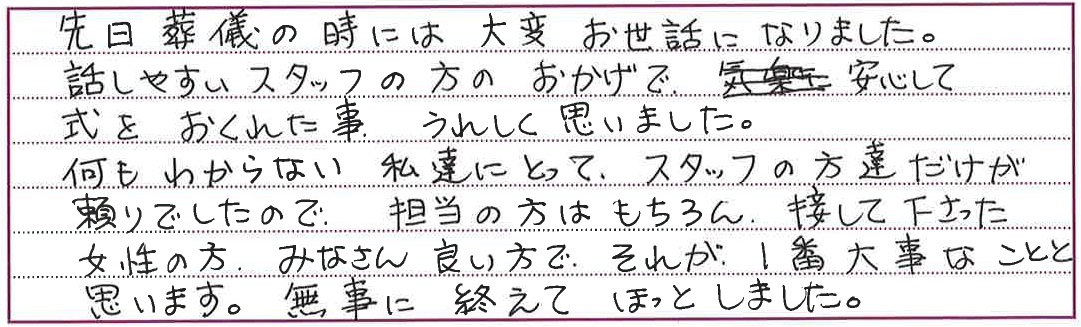 先日 葬儀の時には 大変 お世話に なりました。
話しやすい スタッフの 方の おかげで、気楽に 安心して
式を おくれた事、うれしく 思いました。
何も わからない 私達にとって、スタッフの 方達 だけが
頼りでしたので、担当の 方は もちろん、接して 下さった
女性の方、みなさん 良い方で、それが、1番 大事な ことと
思います。無事に 終えて ほっと しました。